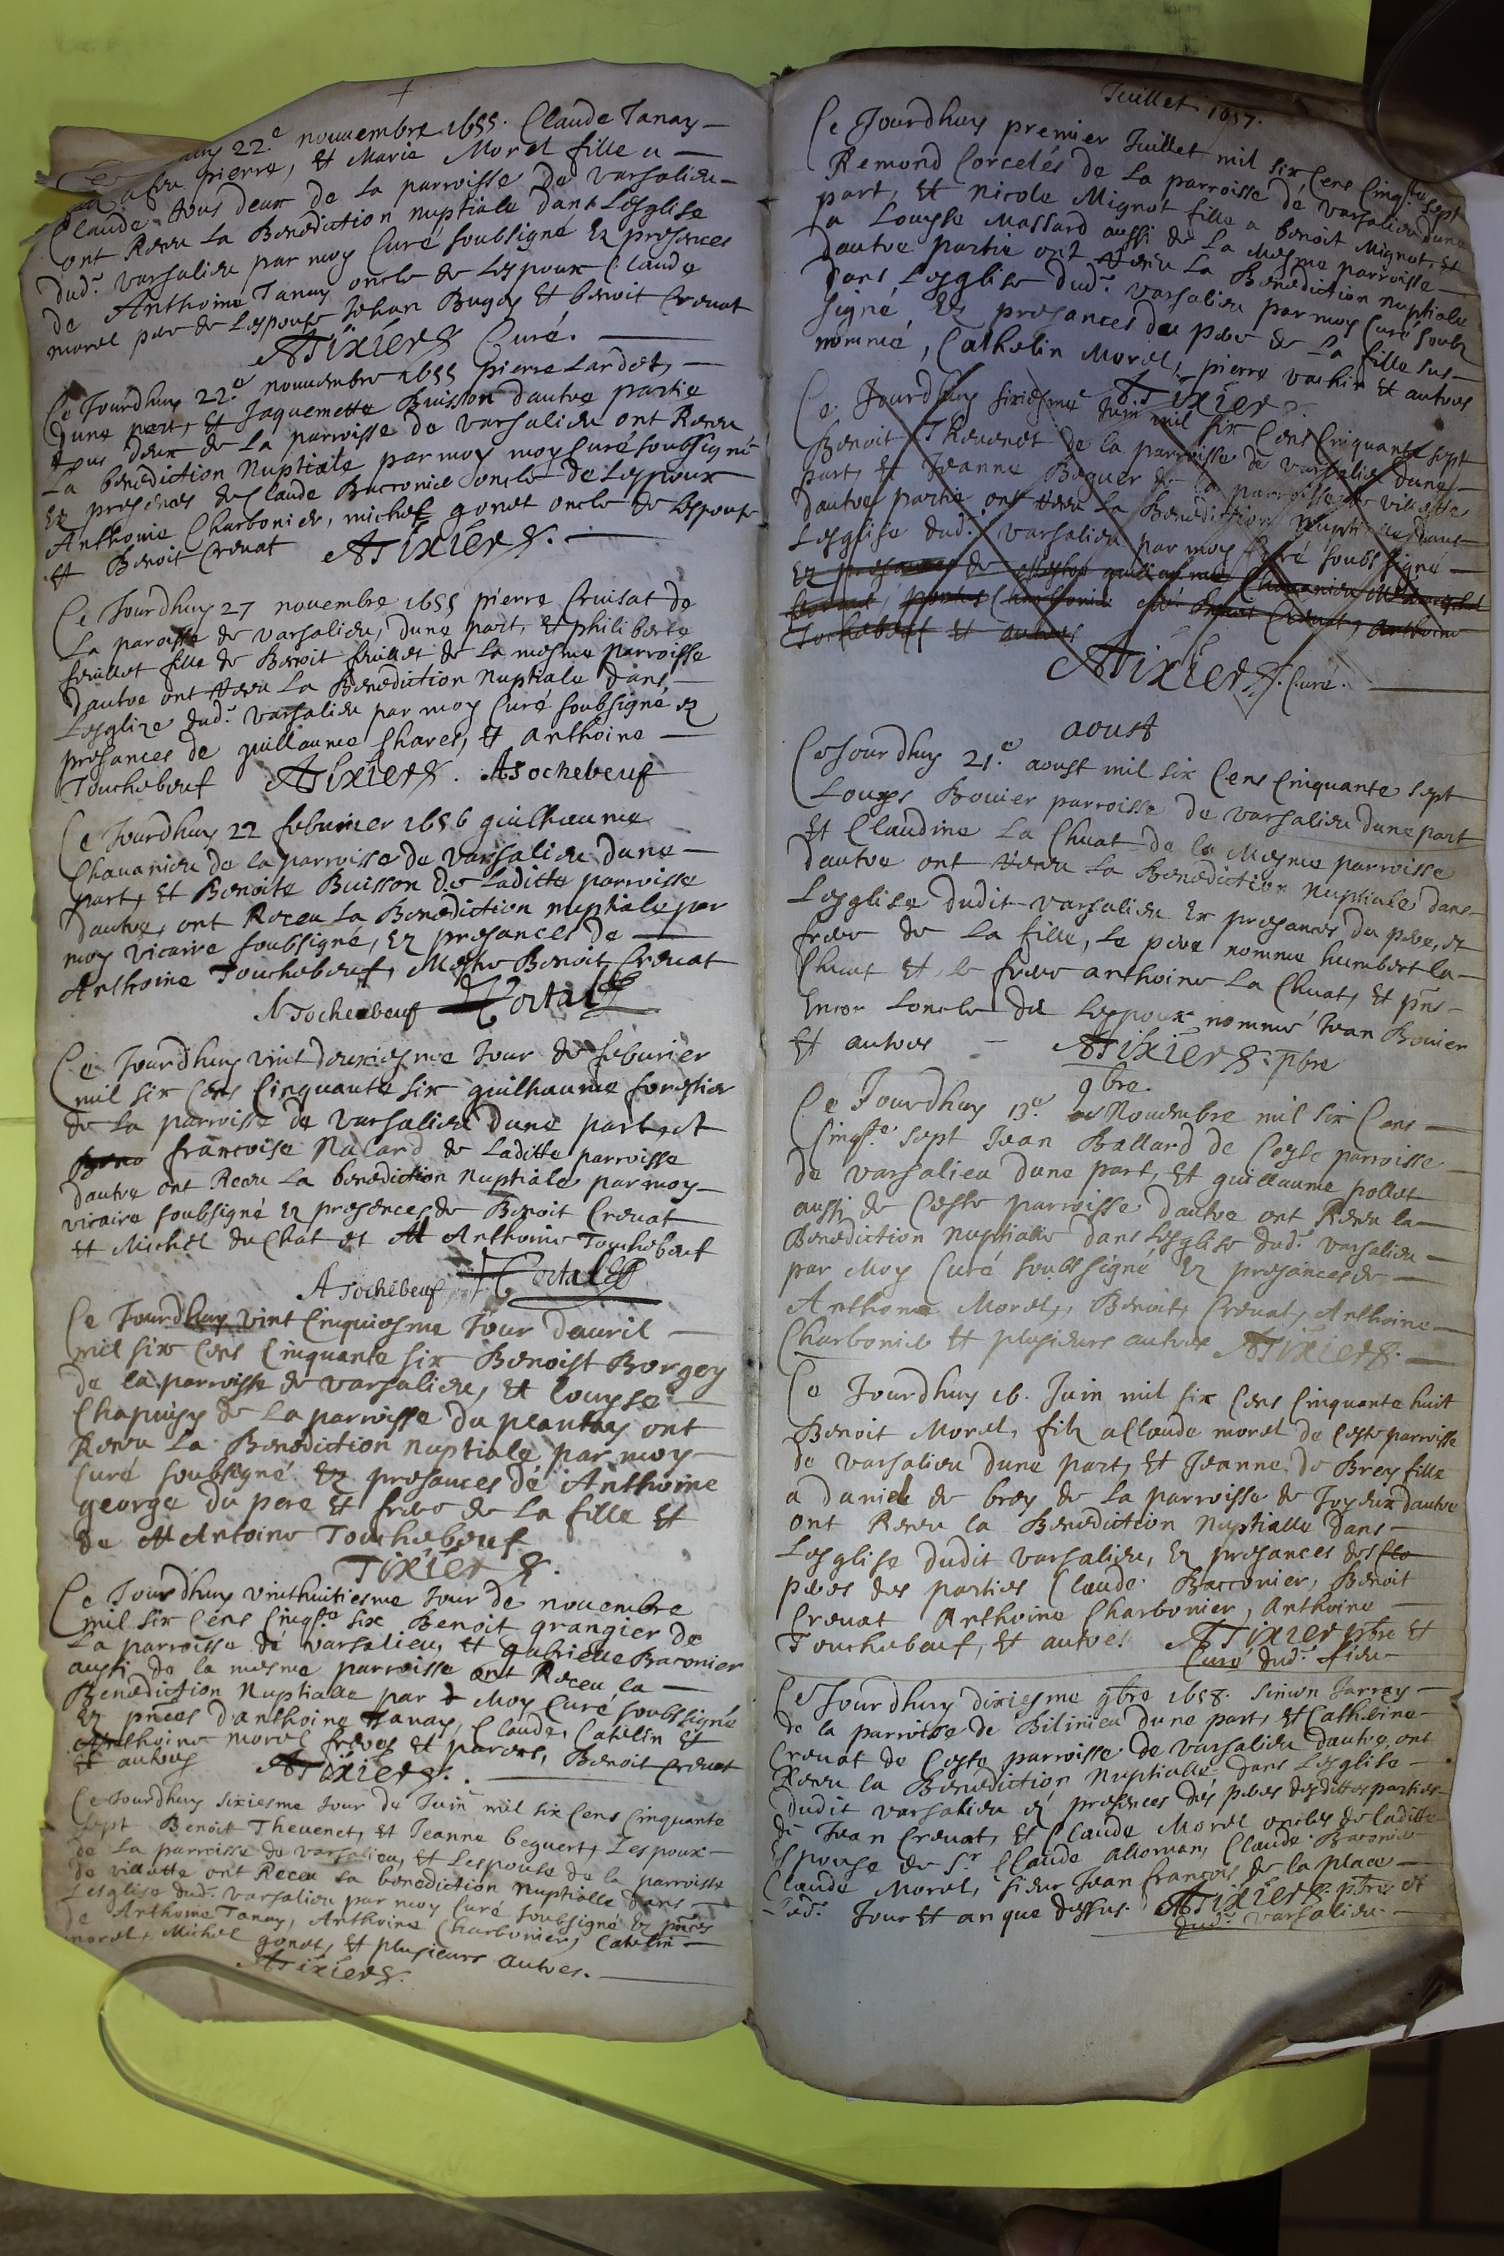 22e nouuembre 1655. Claude Tanay
pierre, et Marie Morel fille a
Claude tous deux de La parroisse de varsalieu
ont Receu La Benediction nuptiale dans Lesglise
dud. varsalieu par moy Curé soubsigné En presences
de Anthoine Tanay oncle de Lespoux Claude
morel pere de Lespouse Jehan Bugey et benoit Creuat
ATixier Curé.
Ce Jourdhuy 22e nouuembre 1655 pierre Lardet
dune part, et Jaquemette Buisson dautre partie
tous deux de La parroisse de varsalieu ont Receu
La benediction Nuptiale par moy moy Curé soubsigné
En presences de Claude Baconier oncle de Lespoux
Anthoine Charbonier, michel gonet oncle de Lespouse
et Benoit Creuat ATixier.
Ce Jourdhuy 27 nouembre 1655 pierre Cruisat de
La paroisse de varsalieu, dune part, et philiberte
feuillet fille de Benoit feuillet de La mesme parroisse
dautre ont Receu La Benediction Nuptiale dans
Lesglize dud. varsalieu par moy Curé soubsigné, en
presances de guillaume Chares, et anthoine
Touchebeuf ATixier. ATochebeuf
Ce Jourdhuy 22 feburier 1656 guilhaume
Chauanieu de la parroisse de varsalieu dune
part, et Benoite Buisson de Laditte parroisse
dautre, ont Receu La Benediction nuptiale par
moy vicaire soubsigné, En presances de
Anthoine Touchebeuf, Mestre Benoit Creuat
ATochebeuf Cortal
Ce Jourdhuy vint deuxiesme Jour de feburier
mil six Cens Cinquante six guilhaume forestier
de La parroisse de varsalieu dune part, et
francoise Nalard de Laditte parroisse
dautre ont Receu La benediction Nuptiale par moy
vicaire soubsigné En presences de Benoit Creuat
et Michel du Chat et M Anthoine Touchebeuf
ATochebeuf Cortal
Ce Jourdhuy vint Cinquiesme Jour dauril
mil six Cens Cinquante six Benoist Borgey
de la parroisse de varsalieu, et Louyse
Chapuisy de La parroisse du plantay ont
Receu La Benediction nuptiale par moy
Curé soubsigné En presances de Anthoine
george du pere et frere de La fille et
de M Antoine Touchebeuf
Tixier.
Ce Jourdhuy vinthuitiesme Jour de nouembre
mil six Cens Cinqte six Benoit grangier de
La parroisse de varsalieu, et gabrielle Baconier
aussi de la mesme parroisse ont Receu la
Benediction Nuptialle par Moy Curé soubssigné
En pnces danthoine Tanay, Claude, Catelin et
Anthoine morel freres et parens, Benoit Creuat
et autres ATixier.
Ce Jourdhuy sixiesme Jour de Juin mil six Cens Cinquante
sept Benoit Theuenet, et Jeanne beguert, Lespoux
de La parroisse de varsalieu, et Lespouse de la parroisse
de villette ont Receu La benediction Nuptialle dans
Lesglise dud. varsalieu par moy Curé soubsigné En pnces
de Anthoine Tanay, Anthoine Charbonier, Catelin
morel, Michel gonet, et plusieurs autres.
ATixier.
Juillet 1657.
Ce Jourdhuy premier Juillet mil six Cens Cinqte sept
Remond Corcelés de La parroisse de varsalieu dune
part, et nicole Mignot fille a benoit Mignot, et
a Louyse Massard aussi de La Mesme parroisse
dautre partie ont Receu La Benediction nuptiale
dans Lesglise dud. varsalieu par moy Curé soubz
signé En presances du pere de La fille sus
nommé, Cathelin Morel, pierre vachin et autres
ATixier.
Ce Jourdhuy sixiesme Juin mil six Cens Cinquante sept
Benoit Theuenet de la parroisse de varsalieu dune
part, et Jeanne Beguer de la parroisse de villette
dautre partie ont Receu La Benediction Nuptialle dans
Lesglise dud. varsalieu par moy Curé soubssigné
En presances de
Touchebeuf et autres
ATixier. Curé.
aoust
Ce Jourdhuy 21e aoust mil six Cens Cinquante sept
Louys Bouier parroisse de varsalieu dune part
et Claudine La Chuat de la Mesme parroisse
dautre ont Receu La Benediction Nuptiale dans
Lesglise dudit varsalieu En presances du pere, et
frere de La fille, Le pere nomme humbert la
Chuat et le frere anthoine La Chuat, et pns
Encor Loncle de Lespoux nommé Jean Bouier
et autres ATixier. pbre
9bre.
Ce Jourdhuy 13e de Nouembre mil six Cens
Cinqte sept Jean Ballard de Ceste parroisse
de varsalieu dune part, et guillaume pollet
aussi de Ceste parroisse dautre ont Receu la
Benediction Nuptialle dans Lesglise dud. varsalieu
par Moy Curé soubssigné En presances de
Anthoine Morel, Benoit Creuat, Anthoine
Charbonier et plusieurs autres ATixier.
Ce Jourdhuy 16. Juin mil six Cens Cinquante huit
Benoit Morel, filz a Claude morel de Ceste parroisse
de varsalieu dune part, et Jeanne de Brey fille
a daniel de brey de La parroisse de Joyeux dautre
ont Receu la Benediction Nuptialle dans
Lesglise dudit varsalieu, En presances des
peres des parties Claude Bacconier, Benoit
Creuat Anthoine Charbonier, Anthoine
Touchebeuf, et autres ATixier pbre et
Curé dud. Lieu
Ce Jourdhuy dixiesme 9bre 1658. simon Jarray
de la parroisse de Bilinieu dune part, et Catherine
Creuat de Ceste parroisse de varsalieu dautre, ont
Receu la Benediction Nuptialle dans Lesglise
dudit varsalieu en presences des peres desdittes parties
de Jean Creuat, et Claude Morel oncles de laditte
Espouse de Sr Claude alleman, Claude Baconier
Claude Morel, sieur Jean francois de la place
Led. Jour et an que dessus. ATixier. pbre et
dud. varsalieu.